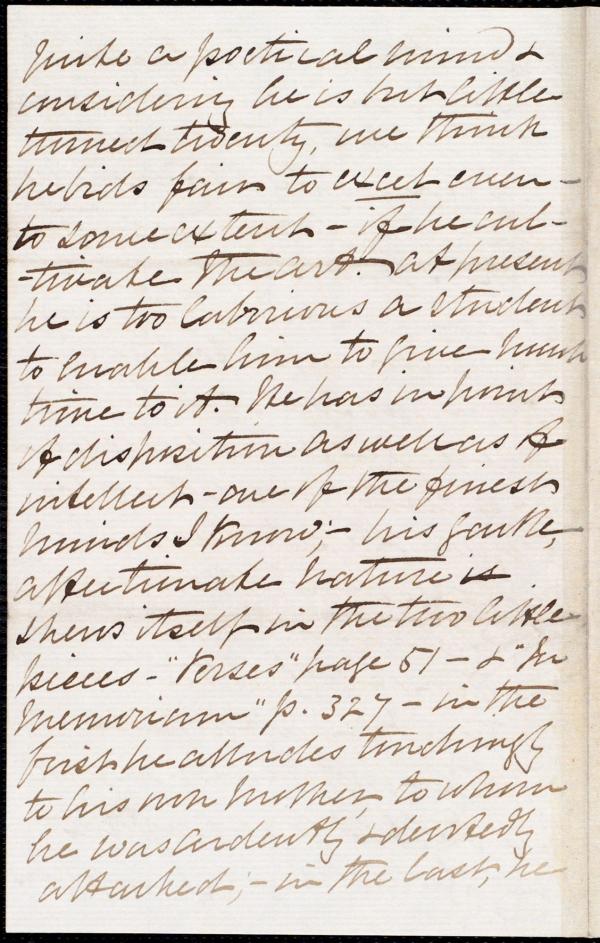 quite a poetical mind &
considering he is but little
turned twenty, we think
he bids fair to excel even -
to some extent - if he cul-
-tivate the art. at present
he is too laborious a student
to enable him to give much
time to it. He has in point
of disposition as well as of
intellect - one of the finest
minds I know; - his gentle,
affectionate nature is
shews itself in the two little
pieces - "Verses" page 51 - & "In
Memoriam" p. 327 - in the
first he alludes touchingly
to his own Mother, to whom
he was ardently & devotedly
attached; - in the last, he